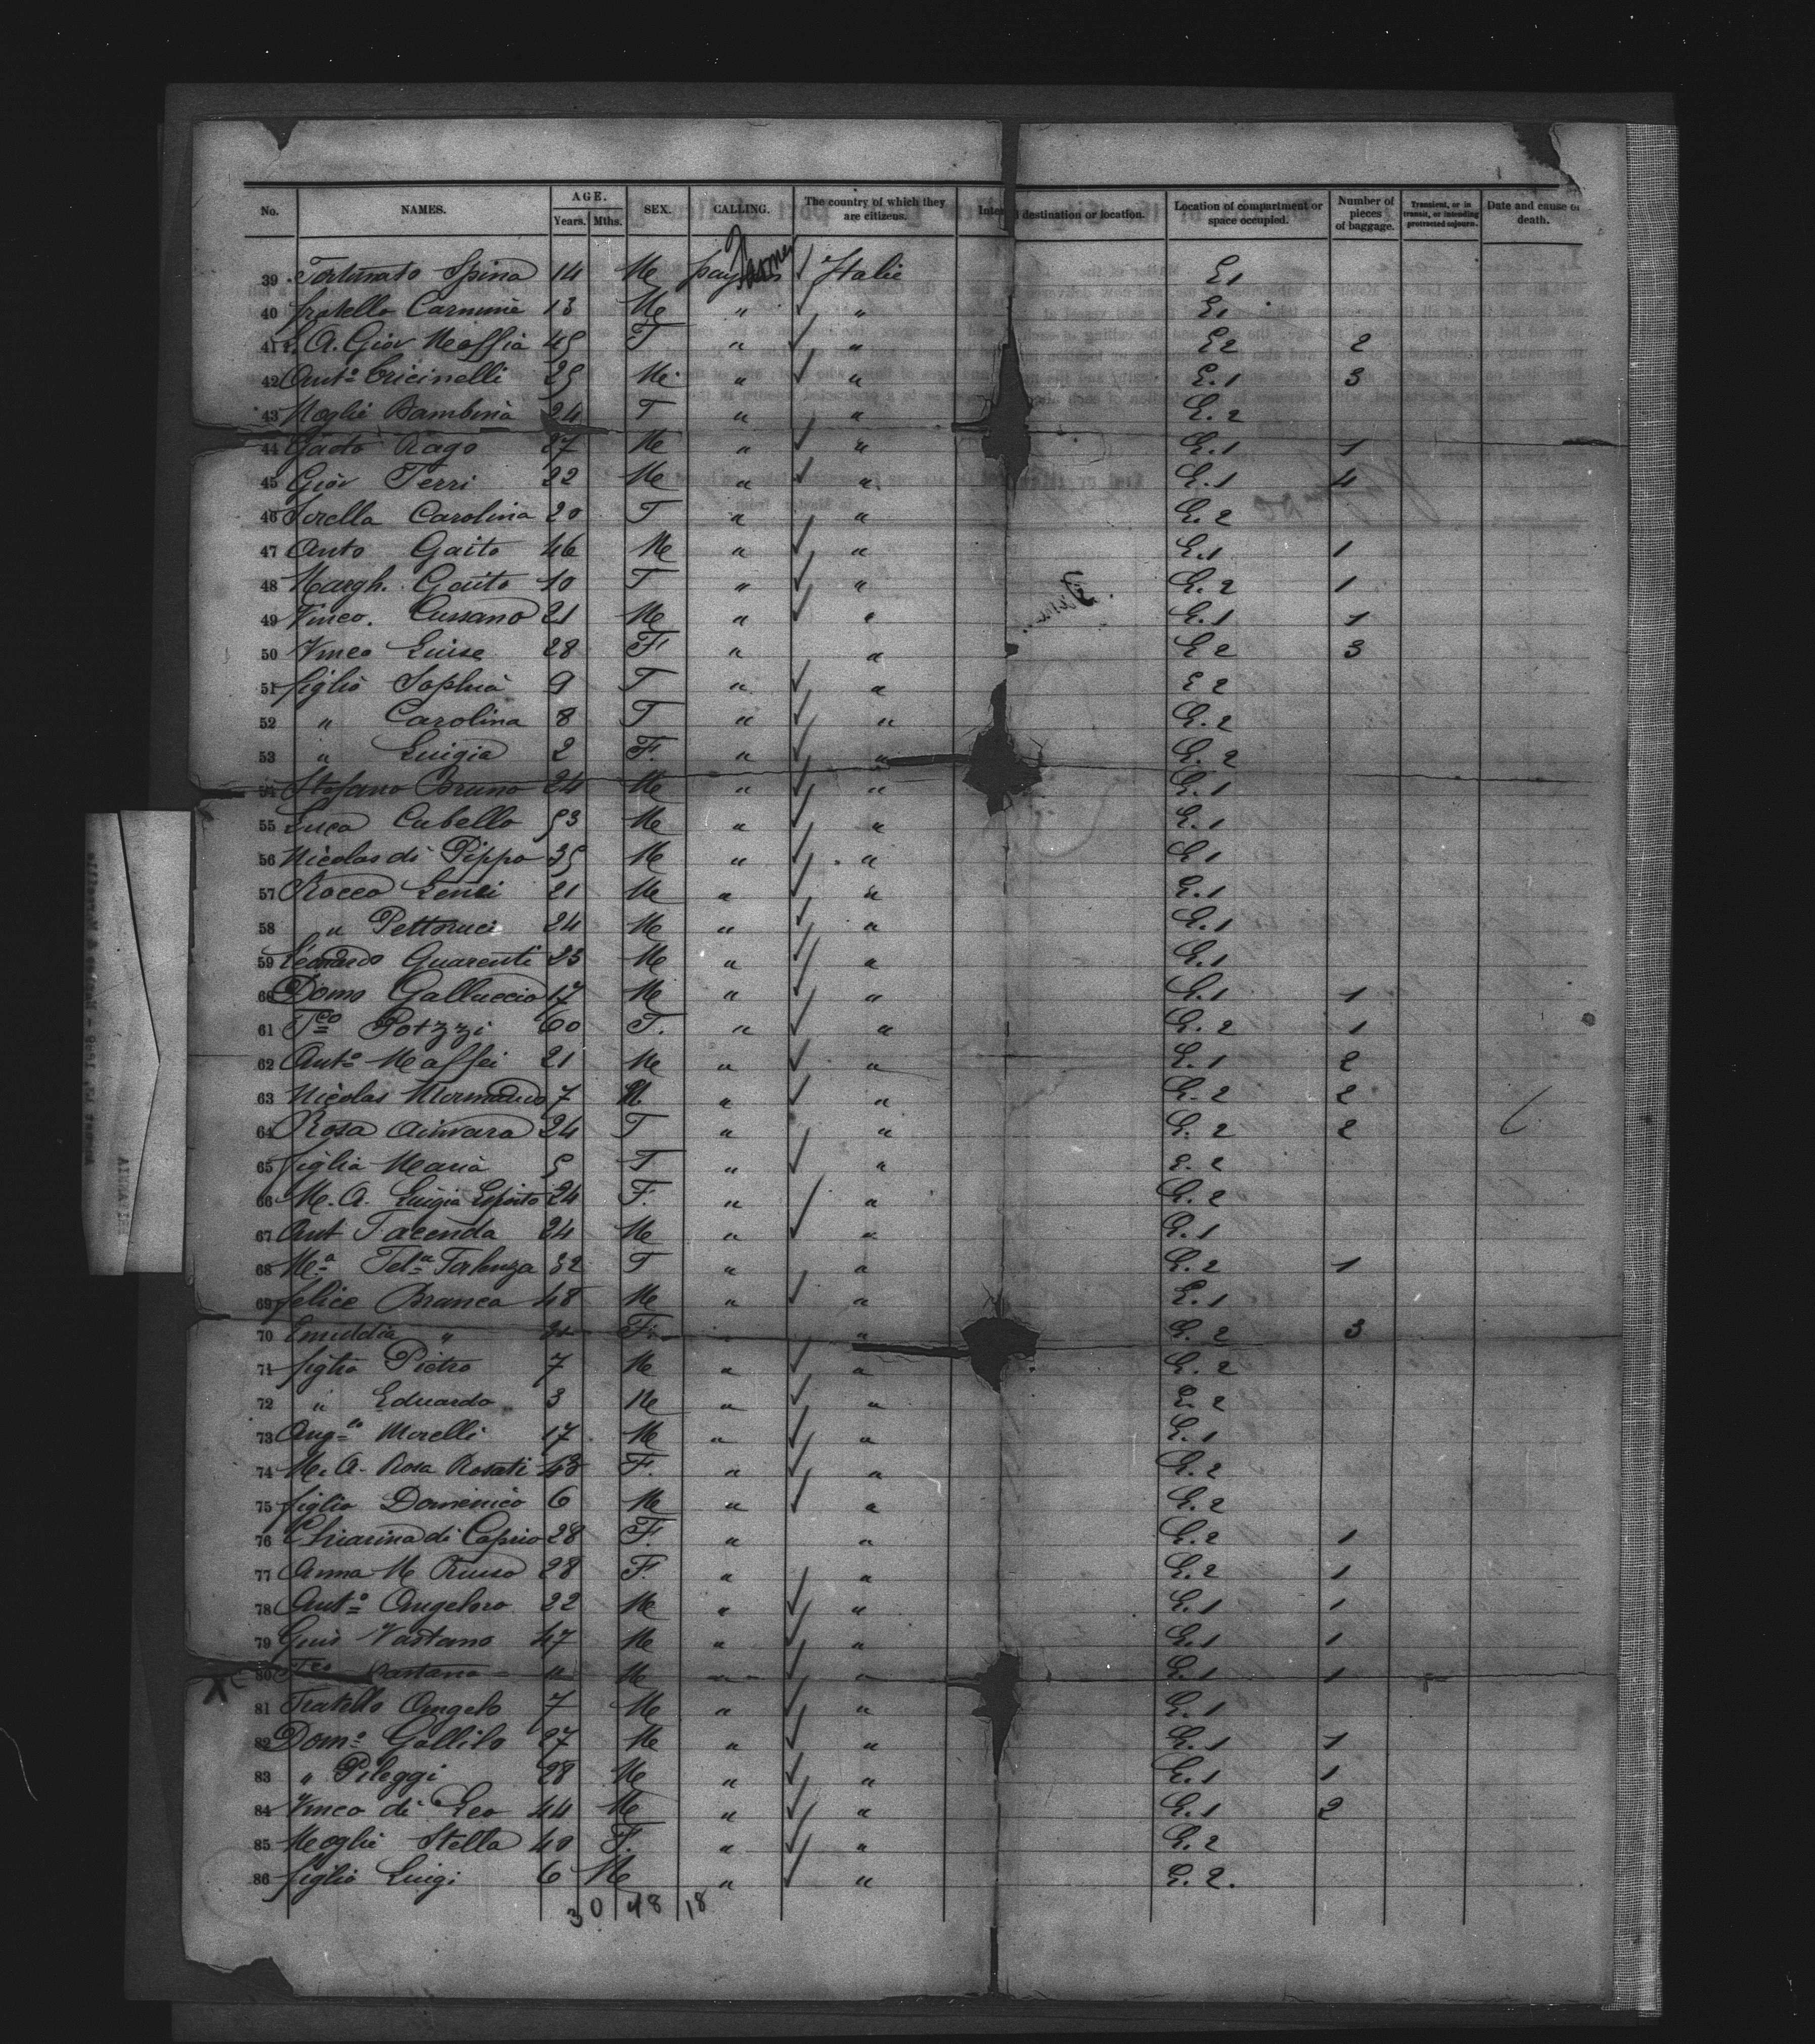 No. NAMES. AGE. Years. Mths. SEX. CALLING. The country of which they are citizens. destination or location. Location of compartment or space occupied. Number of pieces of baggage. Transient, or in transit, or intending protracted sojourn. Date and cause of death.
39 Fortunato Spina 14 M Farmer Italie E1
40 fratello Carmine 13 M " " E1
41 A. Giov Maffia 45 F " " E2 2
42 Anto 25 M " " E.1 3
43 Moglie Bambina 24 F " " E.2
44 Gaeto Rago 27 M " " E.1 1
45 Giov Ferri 22 M " " E.1 4
46 Sorella Carolina 20 F " " E.2
47 Anto Gaito 46 M " " E.1 1
48 Margh. Gaito 10 F " " E.2 1
49 Vinco. Cussano 21 M " " E.1 1
50 Vinco Luise 28 F " " E2 3
51 figlia Sophia 9 F " " E2
52 " Carolina 8 F " " E.2
53 " Luigia 2 F. " " E.2
54 Stefano Bruno 24 M " " E.1
55 Luca Cubello 53 M " " E.1
56 Nicolas di Pippo 35 M " " E1
57 Rocco Lenci 21 M " " E.1
58 " 24 M " " E.1
59 Leonardo Guarenti 23 M " " E.1
60 Domo Galluccio 17 M " " E.1 1
61 Fco Potzzi 60 F. " " E.2 1
62 Anto Maffei 21 M " " E.1 2
63 Nicolas 7 M " " E.2 2
64 Rosa 24 F " " E.2 2
65 figlia Maria 5 F " " E.2
66 M. A. Luigia Esposito 24 F. " " E.2
67 Ant Facenda 24 M " " E.1
68 Ma Fela 32 F " " E.2 1
69 felice Branca 48 M " " E.1
70 Emiddia " F " E.2 3
71 figlio Pietro 7 M " " E.2
72 " Eduardo 3 M " " E.2
73 Morelli 17 M " " E.1
74 M. A. Rosa Rosati 43 F. " " E.2
75 figlio Domenico 6 M " " E.2
76 Chiarina di Caprio 28 F. " " E.2 1
77 Anna M Russo 28 F. " " E.2 1
78 Anto Angeloro 22 M " " E.1 1
79 Vastano 47 M " " E.1 1
80 Fco Vastano M " " E.1 1
81 Fratello Angelo 7 M " " E.1
82 Domo Gallilo 27 M " " E.1 1
83 " Pileggi 28 M " " E.1 1
84 Vinco di Leo 44 M " " E.1 2
85 Moglie Stella 40 F. " " E.2
86 figlio Luigi 6 M " " E.2.
30 48 18